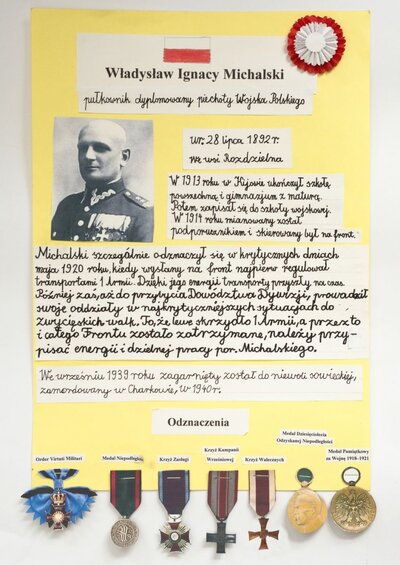 Władysław Ignacy Michalski
pułkownik dyplomowany piechoty Wojska Polskiego
ur. 28 lipca 1892 r.
we wsi Rozdzielna
W 1913 roku w Kijowie ukończył szkołę
powszechną i gimnazjum z maturą.
Potem zapisał się do szkoły wojskowej.
W 1914 roku mianowany został
podporucznikiem i skierowany był na front.
Michalski szczególnie odznaczył się w krytycznych dniach
maja 1920 roku, kiedy wysłany na front najpierw regulował
transportami 1 Armii. Dzięki jego energii transporty przyszły na czas.
Później zaś aż do przybycia Dowództwa Dywizji, prowadził
swoje oddziały w najkrytyczniejszych sytuacjach do
zwycięskich walk. To, że lewe skrzydło 1 Armii, a przez to
i całego Frontu zostało zatrzymane, należy przy-
pisać energii i dzielnej pracy por. Michalskiego.
We wrześniu 1939 roku zagarnięty został do niewoli sowieckiej,
zamordowany w Charkowie, w 1940 r.
Odznaczenia
Order Virtuti Militari
Medal Niepodległości
Krzyż Zasługi
Krzyż Kampanii
Wrześniowej
Krzyż Walecznych
Medal Dziesięciolecia
Odzyskanej Niepodległości
Medal Pamiątkowy
za Wojnę 1918-1921